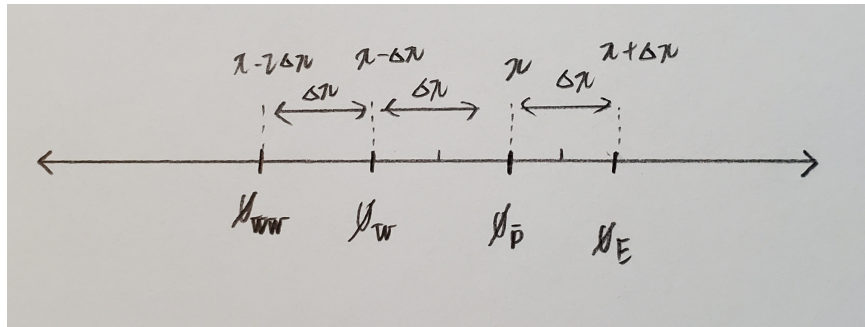 x-2Δx x-Δx x x+Δx
Δx Δx Δx
ϕWW ϕW ϕP ϕE